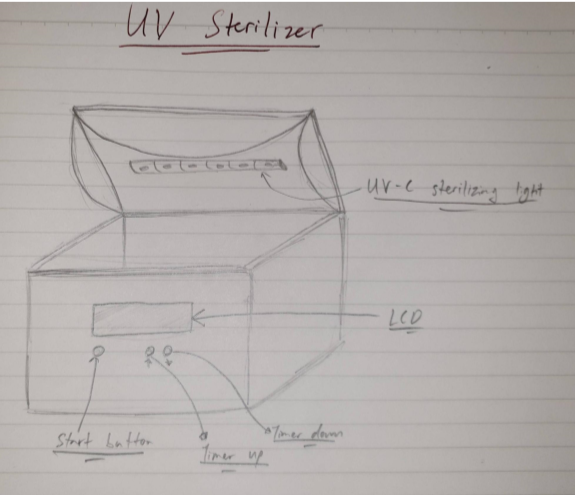 UV Sterilizer
UV-C sterilizing light
LCD
Start button
Timer up
Timer down